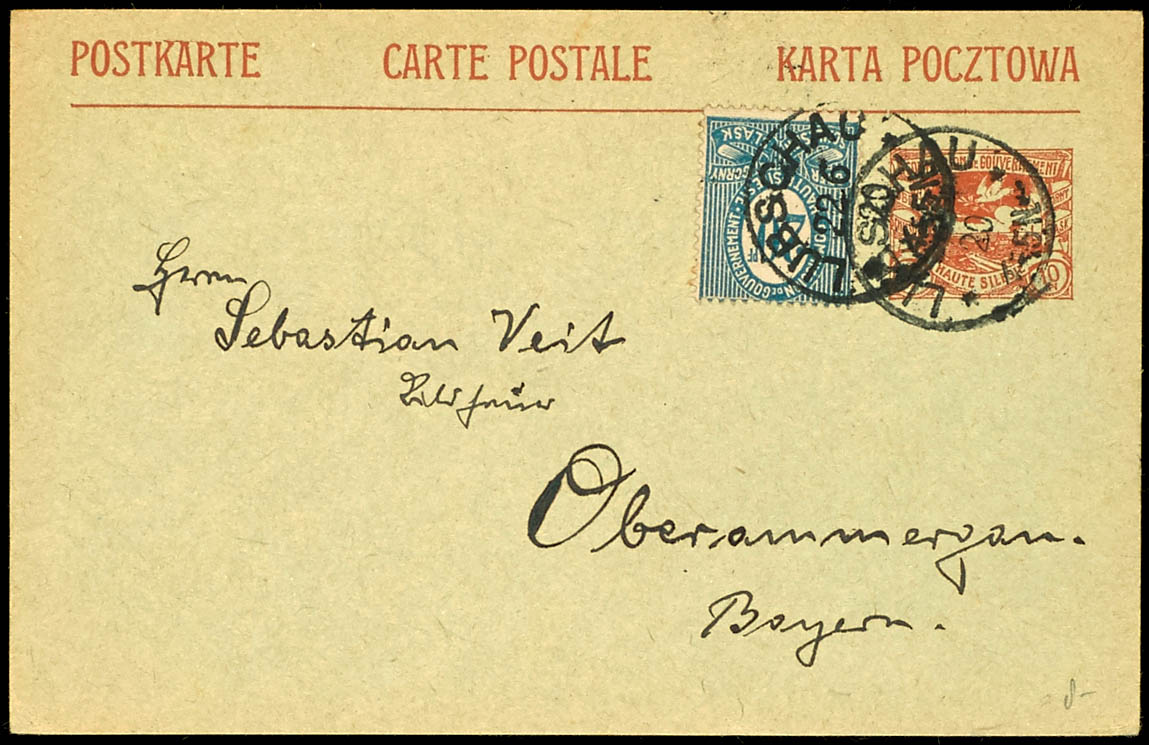 POSTKARTE CARTE POSTALE KARTA POCZTOWA
LUBSCHAU
22.6
20
HAUTE
10
Herrn
Sebastian Veit
Bildhauer
Oberammergau.
Bayern.